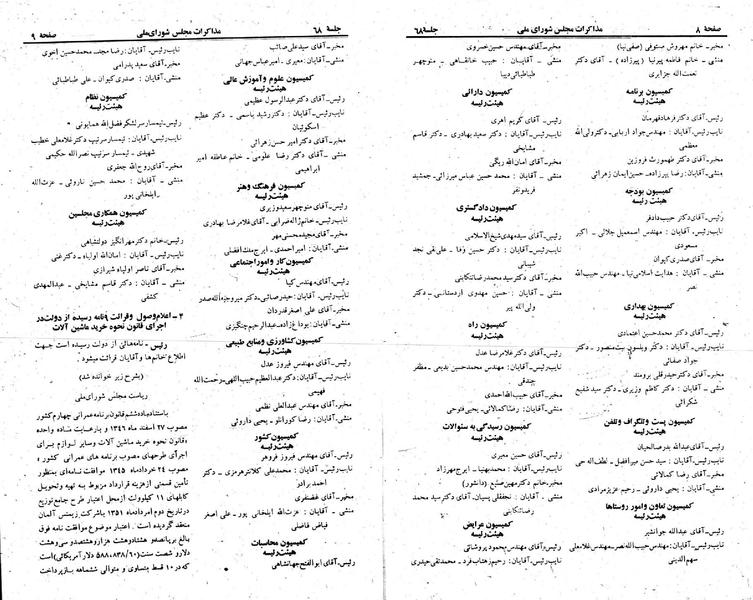 صفحهٔ ۸
مذاکرات مجلس شورای ملی
جلسه ۶۸
مخبر-خانم مهروش مستوفی (صفی‌نیا)
منشی - خانم فاطمه پیرنیا (پیرزاده) - آقای دکتر
نعمت‌الله جزایری
کمیسیون برنامه
هیئت‌رئیسه
رئیس-آقای دکتر فرهاد قهرمان
نایب‌رئیس-آقایان: مهندس جواد اربابی-دکتر ولی‌الله
معظمی
مخبر-آقای دکتر طهمورث فروزین
منشی-آقایان: رضا پیرزاده- حسین ایمان زهرائی
کمیسیون بودجه
هیئت رئیسه
رئیس-آقای دکتر حبیب دادفر
نایب‌رئیس-آقایان: مهندس اسمعیل جلائی - اکبر
مسعودی
مخبر-آقای صدری کیوان
منشی - آقایان: هدایت اسلامی‌نیا- مهندس حبیب‌الله
نصر
کمیسیون بهداری
هیئت‌رئیسه
رئیس- آقای دکتر محمد حسین اعتمادی
نایب‌رئیس-آقایان: دکتر ویلسون بیت‌منصور - دکتر
جواد صفائی
مخبر-آقای دکتر حیدرقلی برومند
منشی - آقایان: دکتر کاظم وزیری - دکتر سید شفیع
شکرائی
کمیسیون پست و تلگراف و تلفن
هیئت‌رئیسه
رئیس-آقای عبدالله بدر صالحیان
نایب‌رئیس- آقایان: سید حسن میرافضل - لطف‌اله حی
مخبر-آقای رضا کمالائی
منشی - آقایان: یحیی داروئی - رحیم عزیز مرادی
کمیسیون تعاون و امور روستاها
هیئت‌رئیسه
رئیس-آقای عبدالله جوانشیر
نایب‌رئیس-آقایان: مهندس حبیب‌الله نصر-مهندس غلامعلی
سهم‌الدینی
مخبر-آقای مهندس حسین خسروی
منشی - آقایان: حبیب خانقاهی - منوچهر
طباطبائی دیبا
کمیسیون دارائی
هیئت‌رئیسه
رئیس-آقای کریم اهری
نایب‌رئیس-آقایان: دکتر سعید بهادری - دکتر قاسم
مشایخی
مخبر-آقای امان‌الله ریگی
منشی - آقایان: محمد حسین عباس میرزائی- جمشید
فریدونفر
کمیسیون دادگستری
هیئت‌رئیسه
رئیس-آقای سید مهدی شیخ‌الاسلامی
نایب‌رئیس-آقایان: دکتر حسین وفا - علی‌نقی نجد
شیبانی
مخبر-آقای دکتر سید محمدرضا تنکابنی
منشی - آقایان: حسین مهدوی اردستانی - دکتر
ولی‌الله پیر
کمیسیون راه
هیئت‌رئیسه
رئیس-آقای دکتر غلامرضا عدل
نایب‌رئیس-آقایان: مهندس محمد حسین بدیعی- مظفر
جندقی
مخبر-آقای حبیب‌الله احمدی
منشی-آقایان: رضا کمالائی-یحیی فتوحی
کمیسیون رسیدگی به سئوالات
هیئت‌رئیسه
رئیس-آقای حسین معیری
نایب‌رئیس-آقایان: محمد بهنیا- ایرج مهرزاد
مخبر-خانم دکتر مهین صنیع (دانشور)
منشی - آقایان: نجفقلی پسیان- آقای دکتر سید محمد
رضا تنکابنی
کمیسیون عرایض
هیئت‌رئیسه
رئیس-آقای مهندس محمود پروشانی
نایب‌رئیس-آقایان: رحیم زهتاب فرد - محمد تقی حیدری
جلسه ۶۸
مذاکرات مجلس شورای ملی
صفحه ۹
مخبر-آقای سید علی صائب
منشی-آقایان: معیری- امیر عباس جهانی
کمیسیون علوم و آموزش عالی
هیئت‌رئیسه
رئیس-آقای دکتر عبدالرسول عظیمی
نایب‌رئیس-آقایان: دکتر رشید یاسمی - دکتر عظیم
اسکوئیان
مخبر-آقای دکتر امیر حسن زهرائی
منشی - آقای دکتر رضا علومی - خانم عاطفه امیر
ابراهیمی
کمیسیون فرهنگ و هنر
هیئت‌رئیسه
رئیس-آقای منوچهر سعید وزیری
نایب‌رئیس-خانم ژاله ضرابی-آقای غلامرضا بهادری
مخبر-آقای مجید محسنی مهر
منشی-آقایان: امیر احمدی- ایرج ملک افضلی
کمیسیون کار و امور اجتماعی
هیئت‌رئیسه
رئیس-آقای مهندس کیا
نایب‌رئیس-آقایان: حیدر صائبی-دکتر میروجه‌الله صدر
مخبر-آقای علی اصغر قدردان
منشی-آقایان: یوداغازاده-عبدالرحیم چنگیزی
کمیسیون کشاورزی و منابع طبیعی
هیئت‌رئیسه
رئیس-آقای مهندس فیروز عدل
نایب‌رئیس-آقایان: دکتر عبدالعظیم حبیب‌اللهی-رحمت‌الله
فهیمی
مخبر-آقای مهندس عبدالعلی نظمی
منشی - آقایان: رضا کورانلو - یحیی داروئی
کمیسیون کشور
هیئت‌رئیسه
رئیس-آقای مهندس فیروز فروهر
نایب‌رئیس-آقایان: محمد علی کلانتر هرمزی - دکتر
احمد برادر
مخبر-آقای غضنفری
منشی - آقایان: عزت‌الله ایلخانی پور - علی اصغر
فیاض فاضلی
کمیسیون محاسبات
هیئت‌رئیسه
رئیس-آقای ابوالفتح جهانشاهی
نایب‌رئیس-آقایان: رضا مجد- محمد حسین اخوی
مخبر-آقای سعید پدرامی
منشی-آقایان: صدری کیوان - علی طباطبائی
کمیسیون نظام
هیئت‌رئیسه
رئیس-تیمسار سرلشکر فضل‌الله همایونی
نایب‌رئیس-آقایان: تیمسار سرتیپ دکتر غلامعلی خطیب
شهیدی - تیمسار سرتیپ نصرالله حکیمی
مخبر-آقای روح‌الله جعفری
منشی - آقایان: محمد حسین ناروئی - عزت‌الله
ایلخانی پور
کمیسیون همکاری مجلسین
هیئت‌رئیسه
رئیس-خانم دکتر مهرانگیز دولتشاهی
نایب‌رئیس-آقایان: امان‌الله اولیاء- دکتر غنی
مخبر-آقای ناصر اولیاء شیرازی
منشی - آقایان: دکتر قاسم مشایخی - عبدالمهدی
کشفی
۴ - اعلام وصول و قرائت نامه رسیده از دولت در
اجرای قانون نحوه خرید ماشین آلات
رئیس - نامه‌هائی از دولت رسیده است جهت
اطلاع خانم‌ها و آقایان قرائت میشود.
(بشرح زیر خوانده شد)
ریاست مجلس شورای ملی
باستناد ماده ششم قانون برنامه عمرانی چهارم کشور
مصوب ۲۷ اسفند ماه ۱۳۴۶ و با رعایت ماده واحده
«قانون نحوه خرید ماشین آلات وسایر لوازم برای
اجرای طرحهای مصوب برنامه های عمرانی کشور»
مصوب ۲۴ خردادماه ۱۳۴۵ موافقت نامه‌ای بمنظور
تأمین قسمتی از هزینه قرارداد مربوط به تهیه و تحویل
کابلهای ۱۱ کیلوولت از محل اعتبار طرح جامع توزیع
در تاریخ دوم امرداد ماه ۱۳۵۱ با شرکت زیمنس آلمان
منعقد گردیده است. اعتبار موضوع موافقت نامه فوق
بالغ بر پانصد و هشتاد و هشت هزار و هشتصد و سی و هشت
دلار و شصت سنت (۵۸۸۰۸۳۸/۶۰ دلار آمریکائی) است
که در ۱۰ قسط متساوی و متوالی ششماهه بازپرداخت